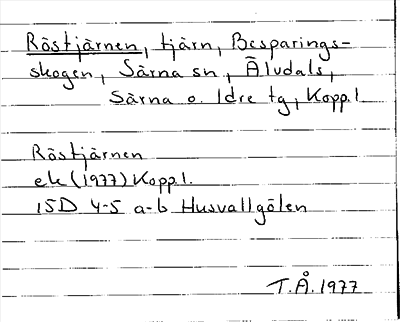 Röstjärnen, tjärn, Besparings-
skogen, Särna sn, Älvdals,
Särna o. Idre tg, Kopp.l
Röstjärnen
ek (1977) Kopp.l.
15D 4-5 a-b Husvallgölen
T.Å. 1977